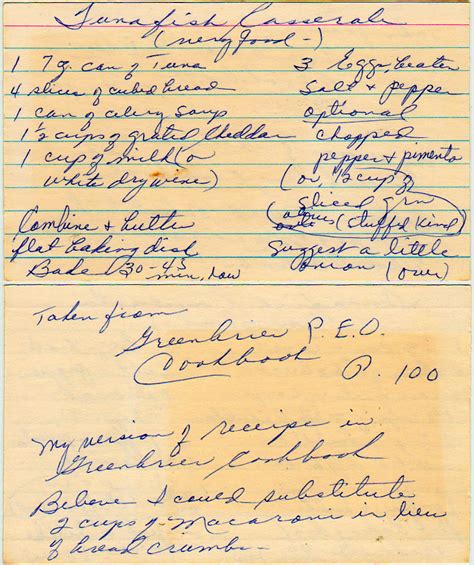 Tunafish Casserole
(very good-)
1 7 oz. can of Tuna
4 slices of cubed bread
1 can of celery soup
1 1/2 cups of grated cheddar
1 cup of milk (or
white dry wine)
Combine + butter
flat baking dish
Bake 30-45 min,
3 Eggs, beaten
Salt + pepper
optional
chopped
pepper + pimento
(or, 1/2 cup of
sliced grn
olives (stuff'd kind)
Suggest a little
onion (over)
Taken from
Greenbrier P.E.O.
Cookbook
P. 100
My version of receipe in
Greenbrier Cookbook
Believe I could substitute
2 cups of Macaroni in lieu
of bread crumbs-